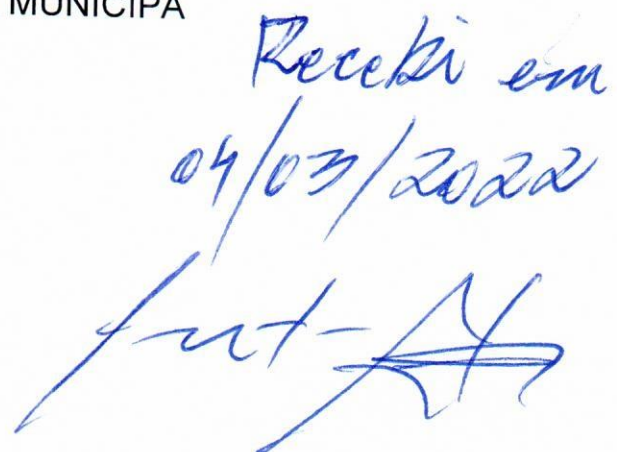 MUNICIPA
Recebi em
04/03/2022